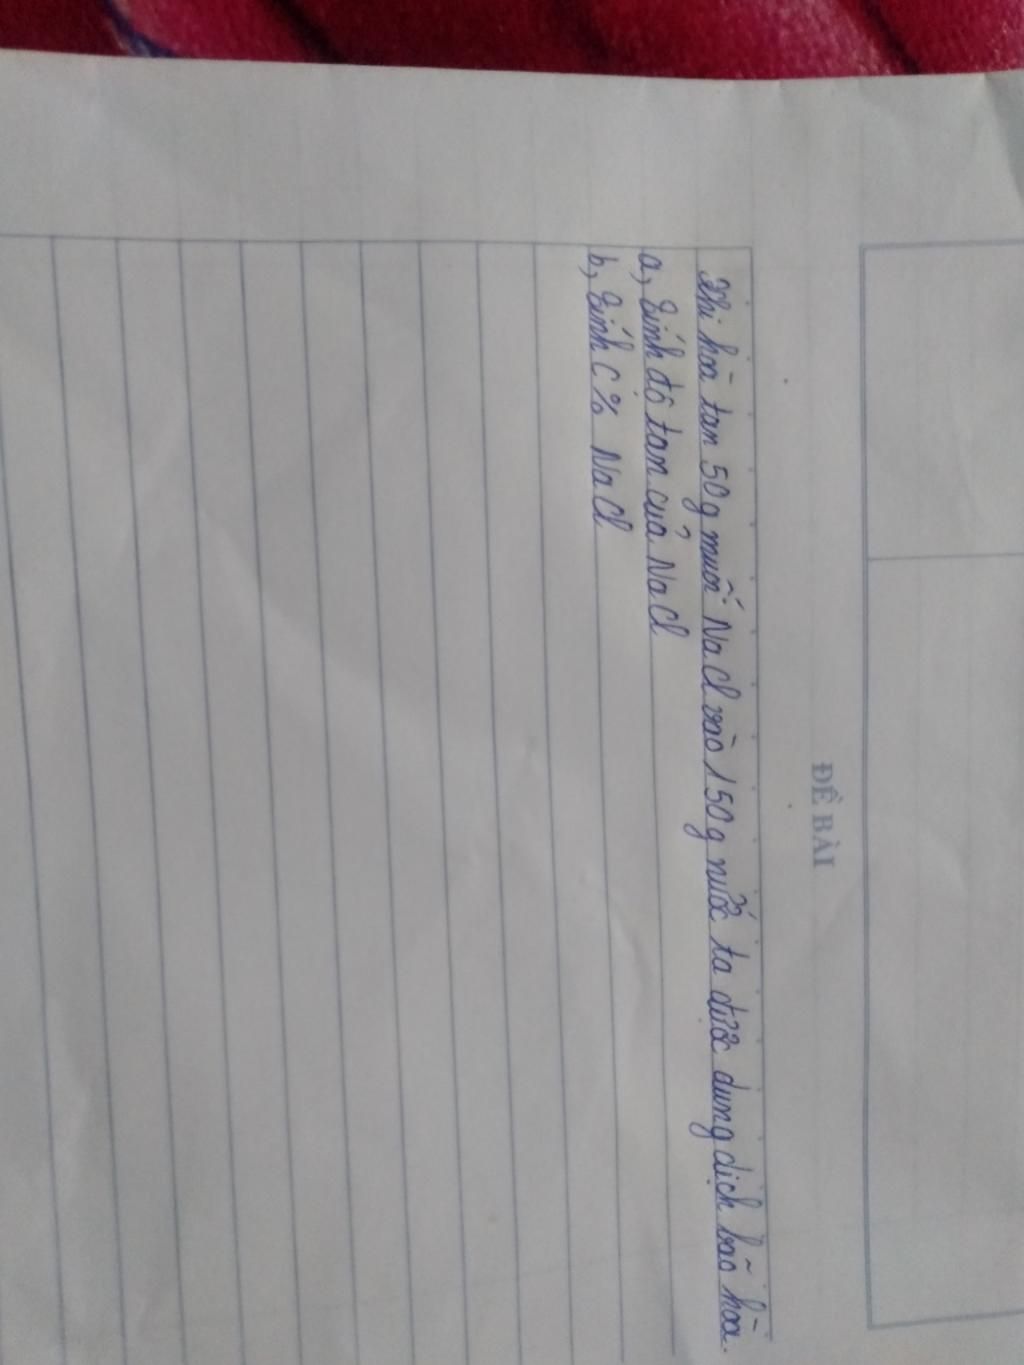 ĐỀ BÀI
Khi hoà tan 50g muối NaCl vào 150g nước ta được dung dịch bão hoà.
a, Tính độ tan của NaCl
b, Tính C% NaCl